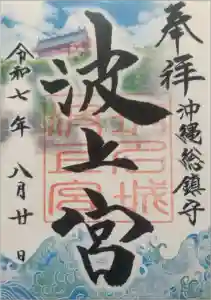 奉拝
沖縄総鎮守
波上宮
令和七年 八月廿日